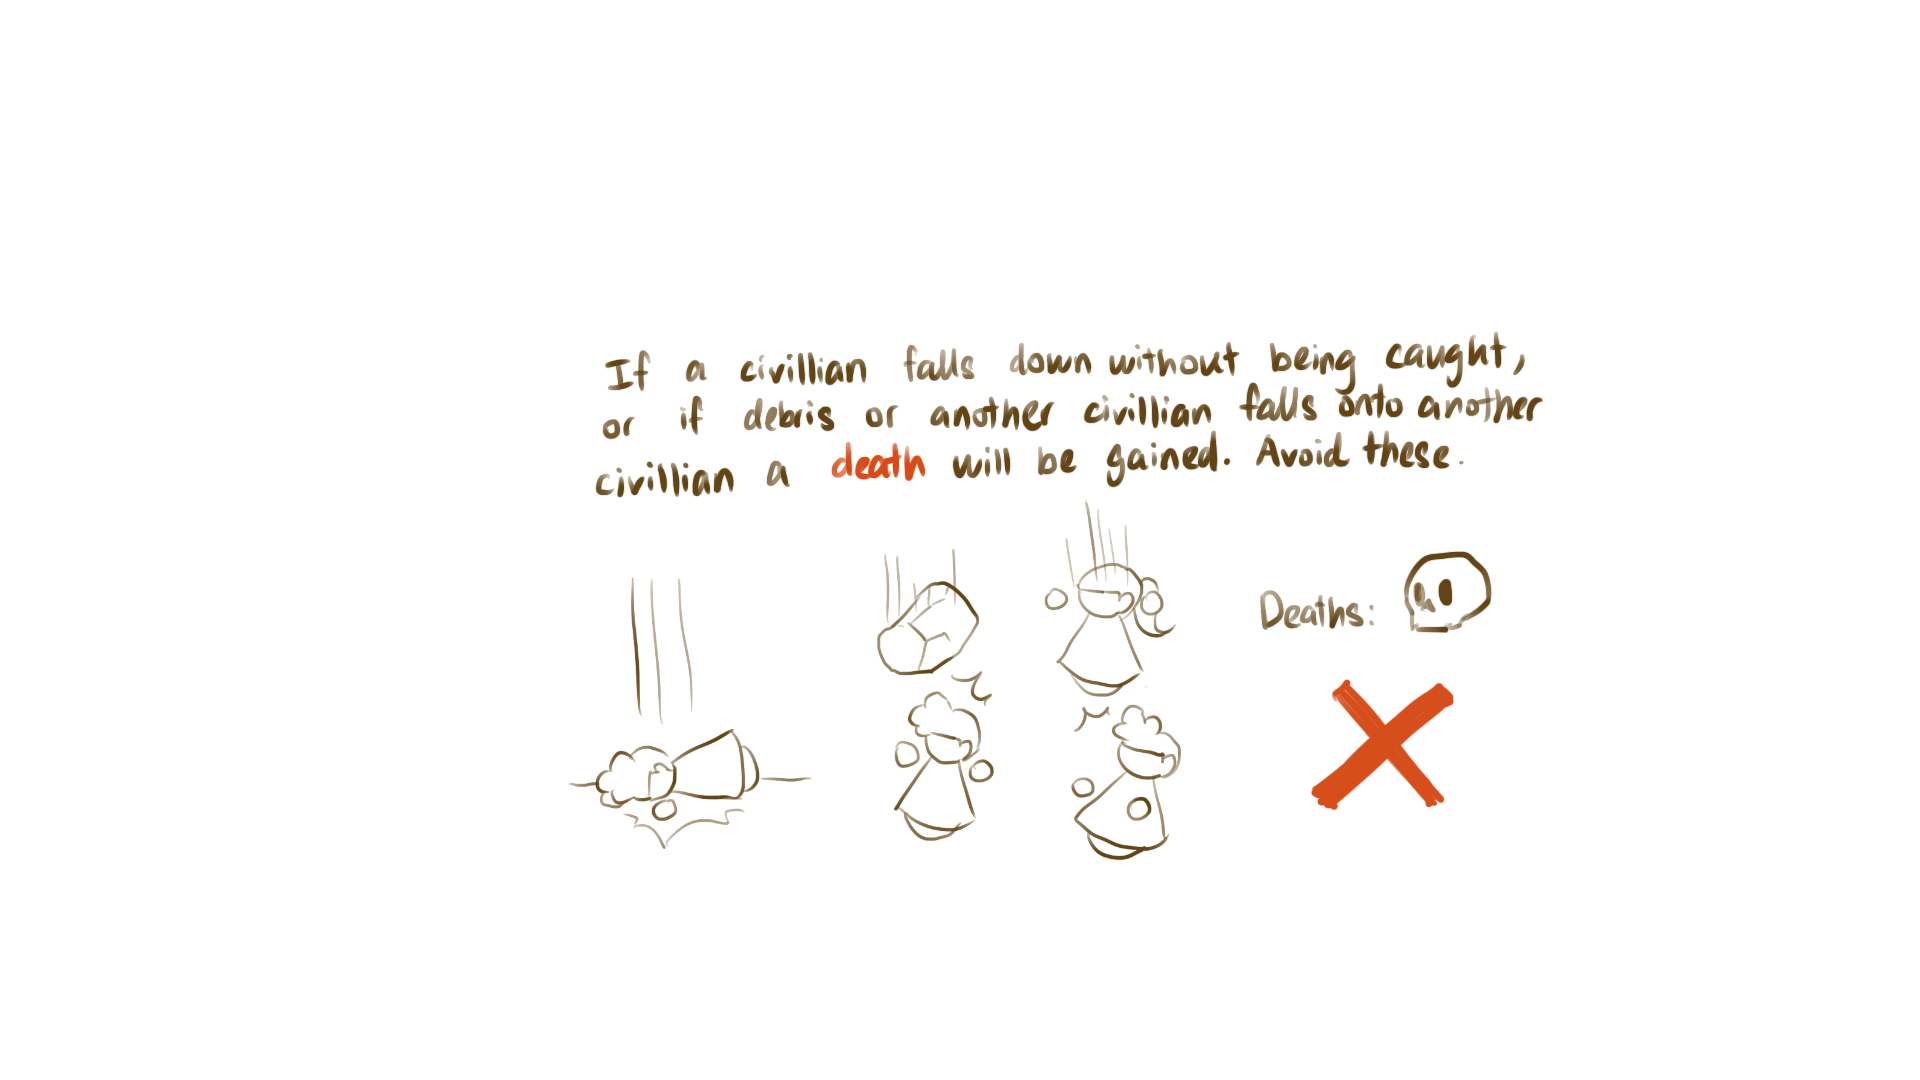 If a civillian falls down without being caught,
or if debris or another civillian falls onto another
civillian a death will be gained. Avoid these.
Deaths: